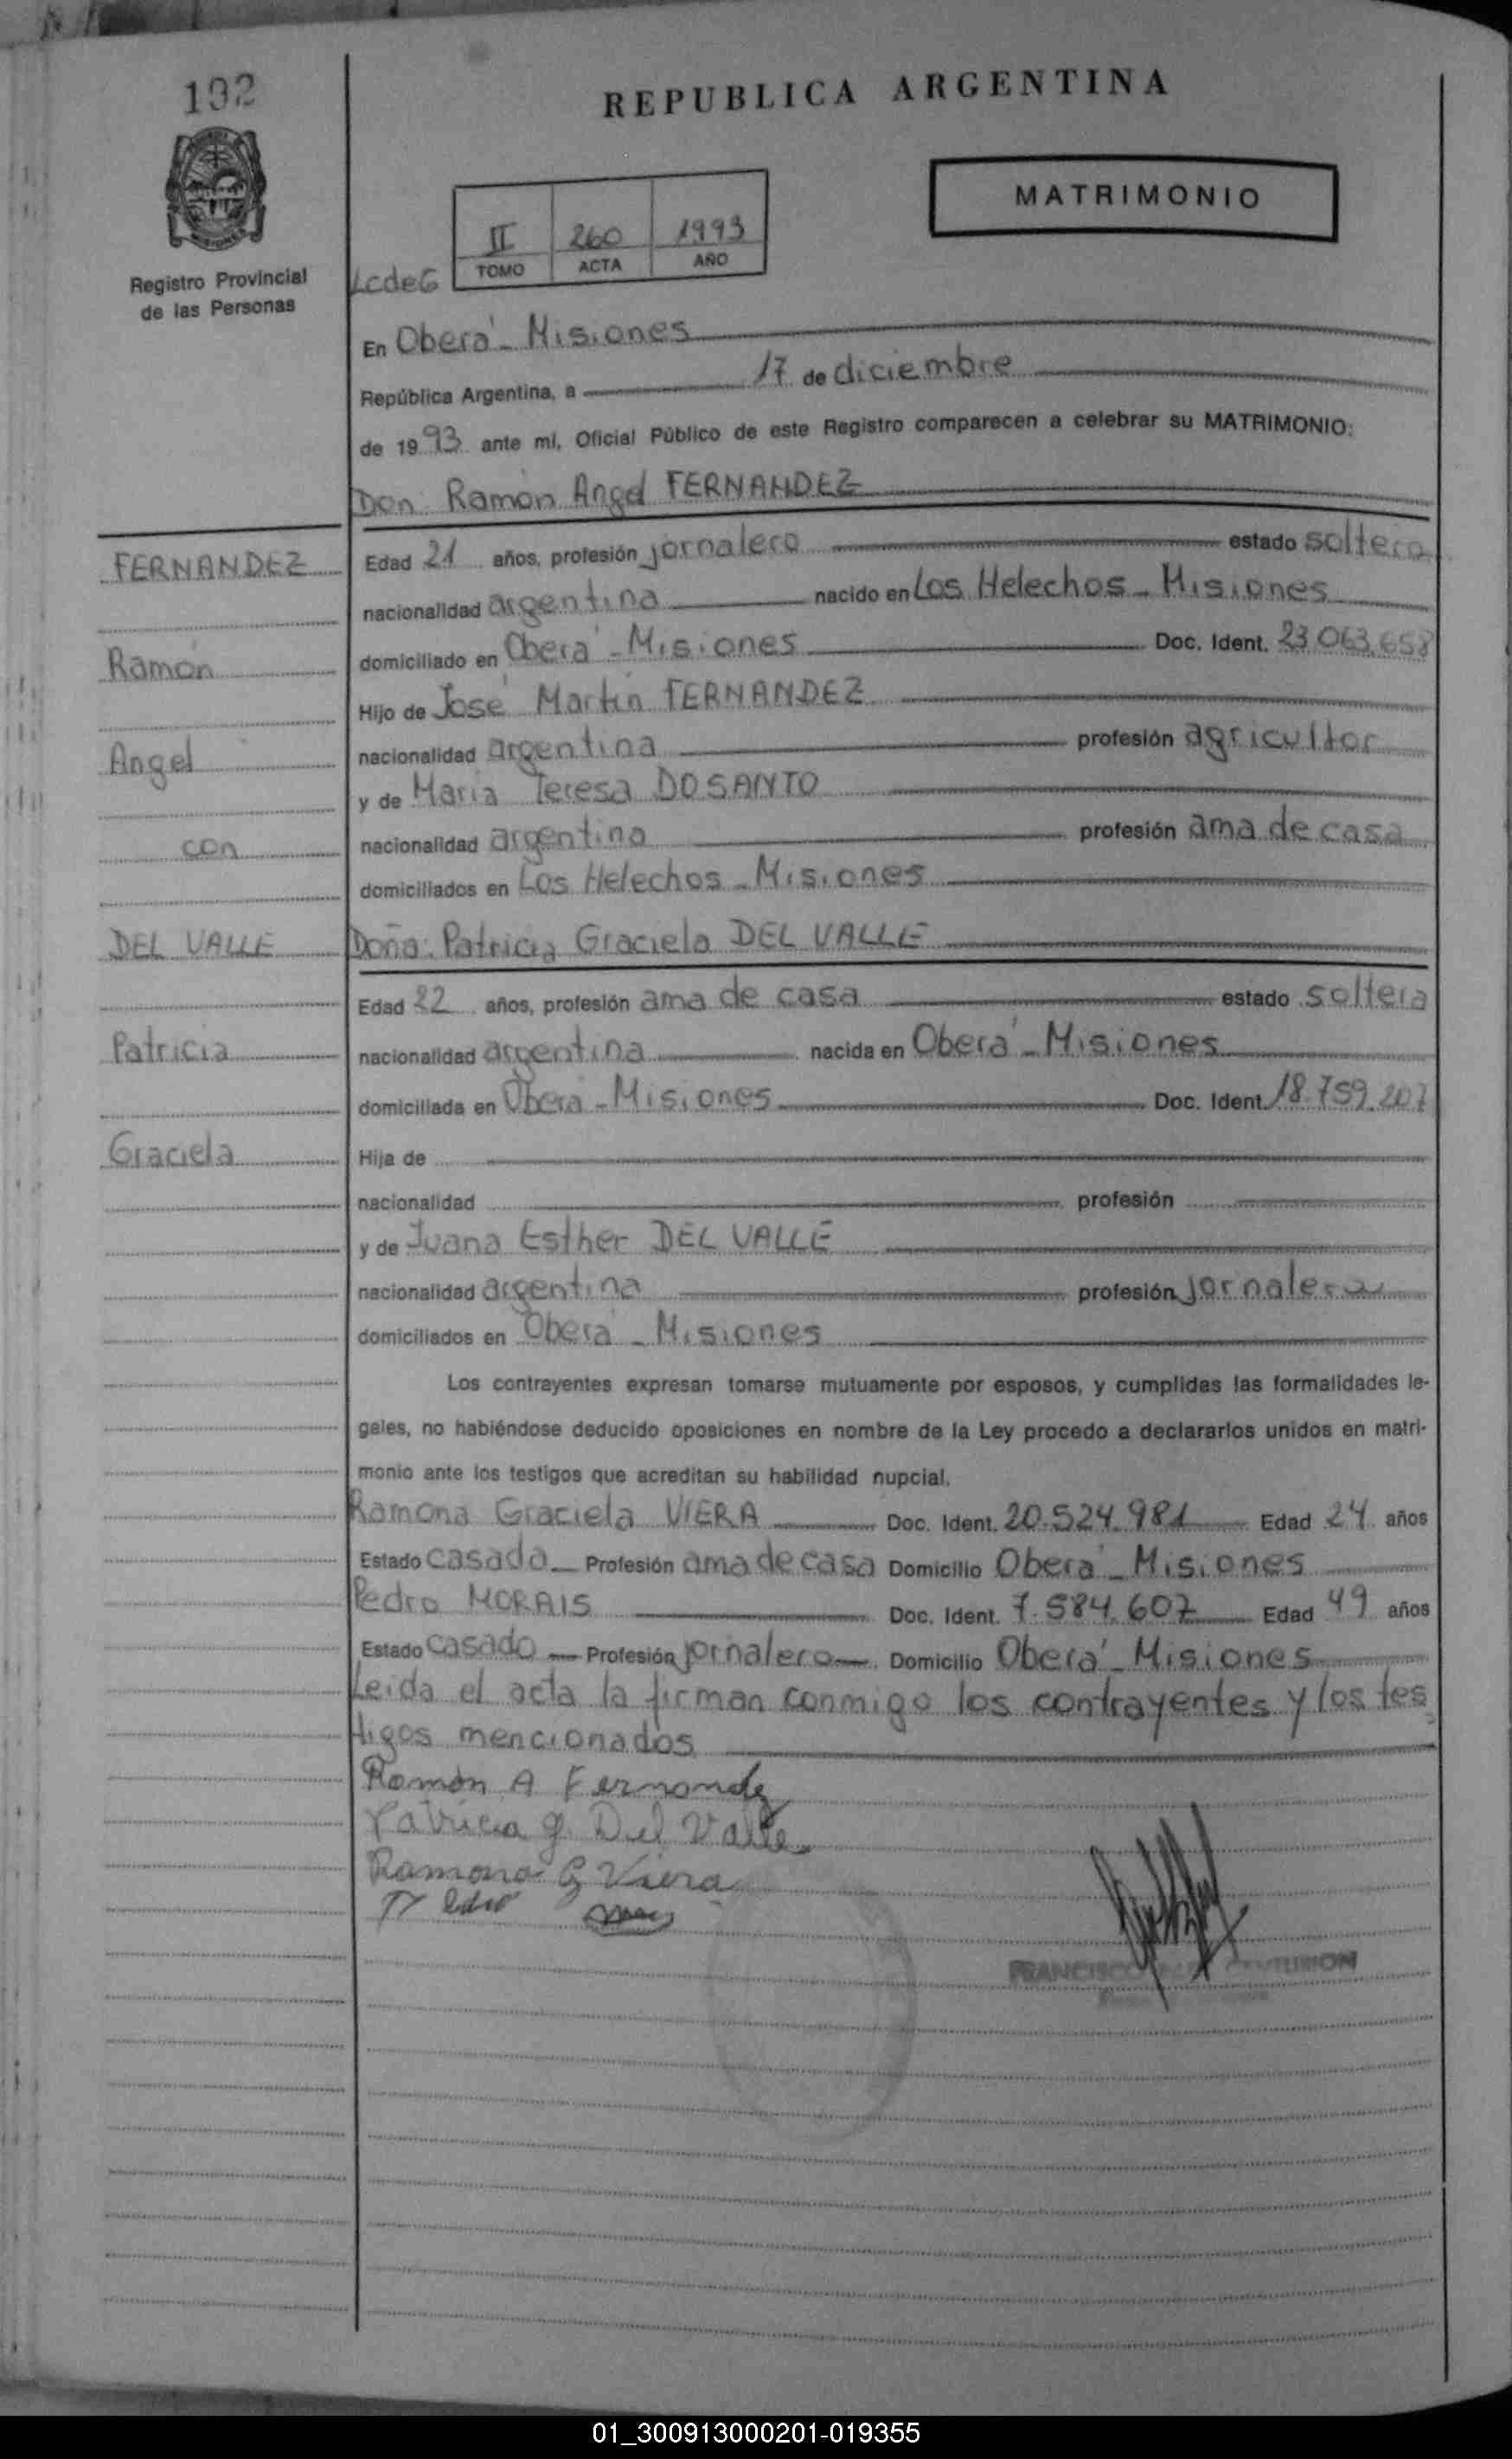 192
REPUBLICA ARGENTINA
MATRIMONIO
II 260 1993
TOMO ACTA AÑO
Registro Provincial
de las Personas
LcdeG
En Oberá - Misiones
República Argentina, a 17 de diciembre
de 1993 ante mí, Oficial Público de este Registro comparecen a celebrar su MATRIMONIO:
Don: Ramón Angel FERNANDEZ
FERNANDEZ
Edad 21 años, profesión jornalero estado soltero
nacionalidad argentina nacido en Los Helechos - Misiones
Ramón
domiciliado en Oberá - Misiones Doc. Ident. 23.063.658
Hijo de José Martin FERNANDEZ
Angel
nacionalidad argentina profesión agricultor
y de Maria Teresa DOSANTO
con
nacionalidad argentina profesión ama de casa
domiciliados en Los Helechos - Misiones
DEL VALLE
Doña: Patricia Graciela DEL VALLE
Edad 22 años, profesión ama de casa estado soltera
Patricia
nacionalidad argentina nacida en Oberá - Misiones
domiciliada en Oberá - Misiones Doc. Ident. 18.759.207
Graciela
Hija de
nacionalidad profesión
y de Juana Esther DEL VALLE
nacionalidad argentina profesión jornalera
domiciliados en Oberá - Misiones
Los contrayentes expresan tomarse mutuamente por esposos, y cumplidas las formalidades le-
gales, no habiéndose deducido oposiciones en nombre de la Ley procedo a declararlos unidos en matri-
monio ante los testigos que acreditan su habilidad nupcial.
Ramona Graciela VIERA Doc. Ident. 20.524.981 Edad 24 años
Estado casada Profesión ama de casa Domicilio Oberá - Misiones
Pedro MORAIS Doc. Ident. 7.584.607 Edad 49 años
Estado casado Profesión jornalero Domicilio Oberá - Misiones
Leida el acta la firman conmigo los contrayentes y los tes
tigos mencionados
Ramón A Fernandez
Patricia G. Del Valle
Ramona G Viera
FRANCISCO CENTURION
01_300913000201-019355